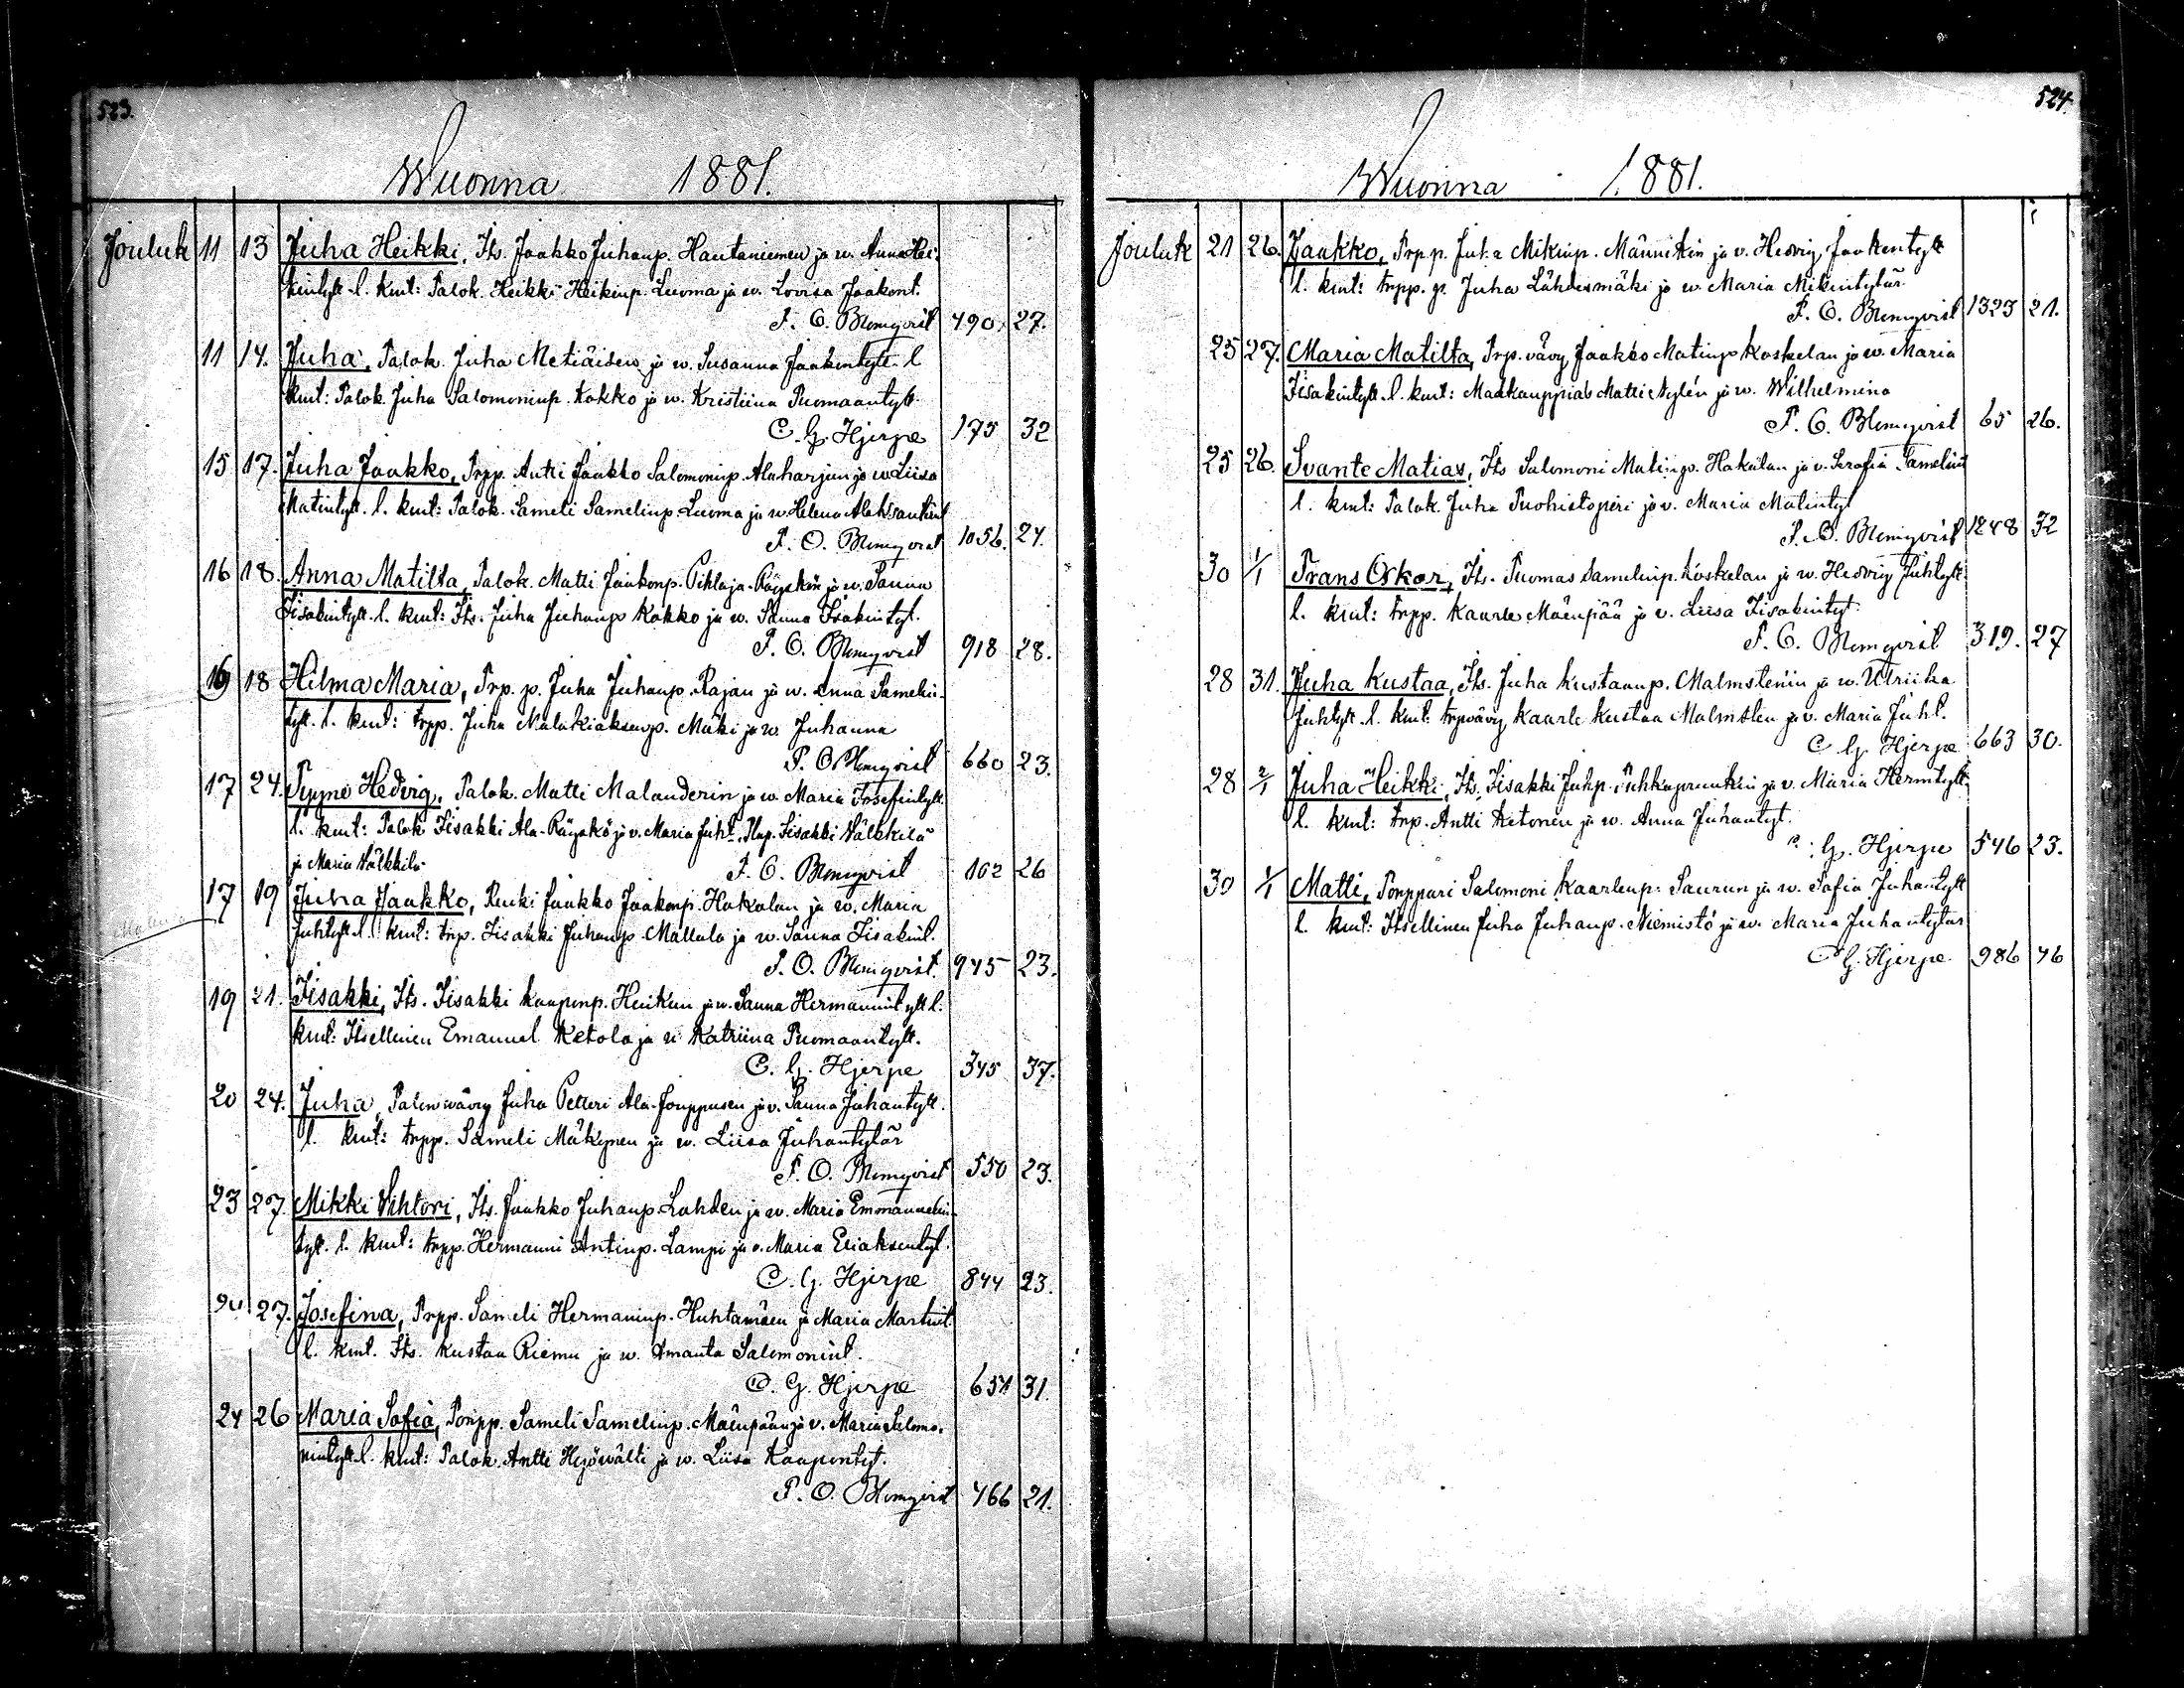 523.
Wuonna 1881.
Jouluk 11 13 Juha Heikki, Its. Jaakko Juhanp. Hautaniemen ja w. Anna Hei-
kintytt. l. kmt: Talok. Heikki Heikinp. Luoma ja w. Lovisa Jaakont.
F. O. Blomqvist 490, 27.
11 14. Juha, Talok. Juha Metiäisen ja w. Susanna Jaakontytt. l
kmt: Talok. Juha Salomoninp. Kokko ja w. Kristiina Tuomaantytt.
C. G. Hjerpe 175 32
15 17. Juha Jaakko, Trpp. Antti Jaakko Salomoninp. Alaharjun ja w. Liisa
Matintytt. l. kmt: Talok. Sameli Samelinp. Luoma ja w. Helena Aleksantint
F. O. Blomqvist 1056. 24.
16 18. Anna Matilta, Talok. Matti Jaakonp. Pihlaja-Räyskön ja w. Sanna
Iisakintytt. l. kmt: Its. Juha Juhanp Kokko ja w. Sanna Isakintyt.
F. O. Blomqvist 918 28.
16 18 Hilma Maria, Trp. p. Juha Juhanp. Rajan ja w. Anna Samelin-
tytt. l. kmt: trpp. Juha Malakiaksenp. Mäki ja w. Juhanna
F. O Blomqvist 660 23.
17 24. Syyne Hedvig, Talok. Matti Malanderin ja w. Maria Josefintytt.
l. kmt: Talok Iisakki Ala-Räyskö ja v. Maria Juht. Iisakki Välkkilä
ja Maria Välkkilä F. O. Blomqvist 102 26
17 19 Juha Jaakko, Renki Jaakko Jaakonp. Hakalan ja w. Maria
Juhtytt. l. kmt: trp. Iisakki Juhanp. Mattala ja w. Sanna Iisakint.
F. O. Blomqvist. 945 23.
19 21. Iisakki, Its. Iisakki Kaaponp. Heikun ja w. Sanna Hermannint ytt l.
kmt: Itsellinen Emanuel Ketola ja w Katriina Tuomaantytt.
C. G. Hjerpe 345 37.
20 24. Juha, Talon wävy Juha Petteri Ala-Jouppusen ja v. Sanna Juhantytt.
l. kmt: trpp. Sameli Mäkynen ja w. Liisa Juhantytär
F. O. Blomqvist 550 23.
23 27. Mikki Vihtori, Its. Jaakko Juhanp. Lahden ja w. Maria Emmanuelin-
tyt. l. kmt: trpp. Hermanni Antinp. Lampi ja v. Maria Eliaksentyt.
C. G. Hjerpe 844 23.
24 27. Josefina, Trpp. Sameli Hermaninp. Huhtamäen ja Maria Martint.
l. kmt. Its. Kustaa Riemu ja w. Amanta Salomonint.
C. G. Hjerpe 654 31.
24 26 Maria Sofia, Torpp. Sameli Samelinp. Mäenpään ja v. Maria Salomo-
nintytt. l. kmt: Talok. Antti Hyöwälti ja w. Liisa Kaapontyt.
F. O. Blomqvist 466 21.
524.
Wuonna 1881.
Jouluk 21 26. Jaakko, Trp. p. Juha Mikinp. Männikön ja v. Hedvig Jaakontytt
l. kmt: trpp. p. Juha Lähdesmäki ja w. Maria Mikintytär
F. O. Blomqvist 1323 21.
25 27. Maria Matilta, Trp. vävy Jaakko Matinp Koskelan ja w. Maria
Iisakintytt. l. kmt: Maakauppias Matti Nylén ja w. Wilhelmina
F. O. Blomqvist 65 26.
25 26. Svante Matias, Its Salomoni Matinp. Hakalan ja v. Serafia Samelint
l. kmt: Talok. Juha Tuohistoperi ja v. Maria Matintyt
F. O. Blomqvist 1248 32
30 1/1 Frans Oskar, Its. Tuomas Samelinp. Koskelan ja w. Hedvig Juhtytt.
l. kmt: trpp. Kaarle Mäenpää ja v. Liisa Iisakintyt.
F. O. Blomqvist 319. 27
28 31. Juha Kustaa, Its. Juha Kustaanp. Malmstenin ja w. Ulriika
Juhtytt. l. kmt: trpvävy Kaarle Kustaa Malmsten ja v. Maria Juht.
C G. Hjerpe 663 30.
28 2/1 Juha Heikki, Its. Iisakki Juhp. ja v. Maria Hermtytt.
l. kmt: trp. Antti Ketonen ja w. Anna Juhantyt.
C. G. Hjerpe 546 23.
30 1/1 Matti, Torppari Salomoni Kaarlenp. Saurun ja w. Sofia Juhantytt
l. kmt: Itsellinen Juha Juhanp. Niemistö ja w. Maria Juhantytär
C G. Hjerpe. 986 46